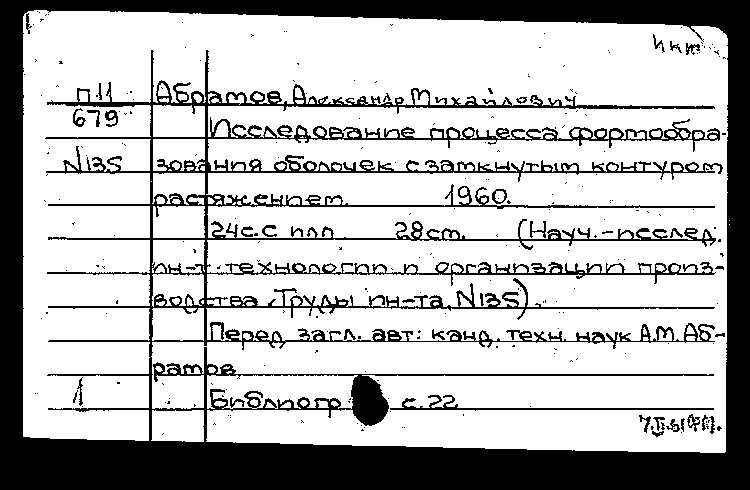 инт
П11 Абрамов, Александр Михайлович
679 Исследование процесса формообра-
N135 зования оболочек с замкнутым контуром
растяжением. 1960.
24с.с илл 28см. (Науч.-исслед.
ин-т технологии и организации произ-
водства. Труды ин-та, N135).
Перед загл. авт: канд. техн. наук А.М. Аб-
рамов
1 Библиогр с.22